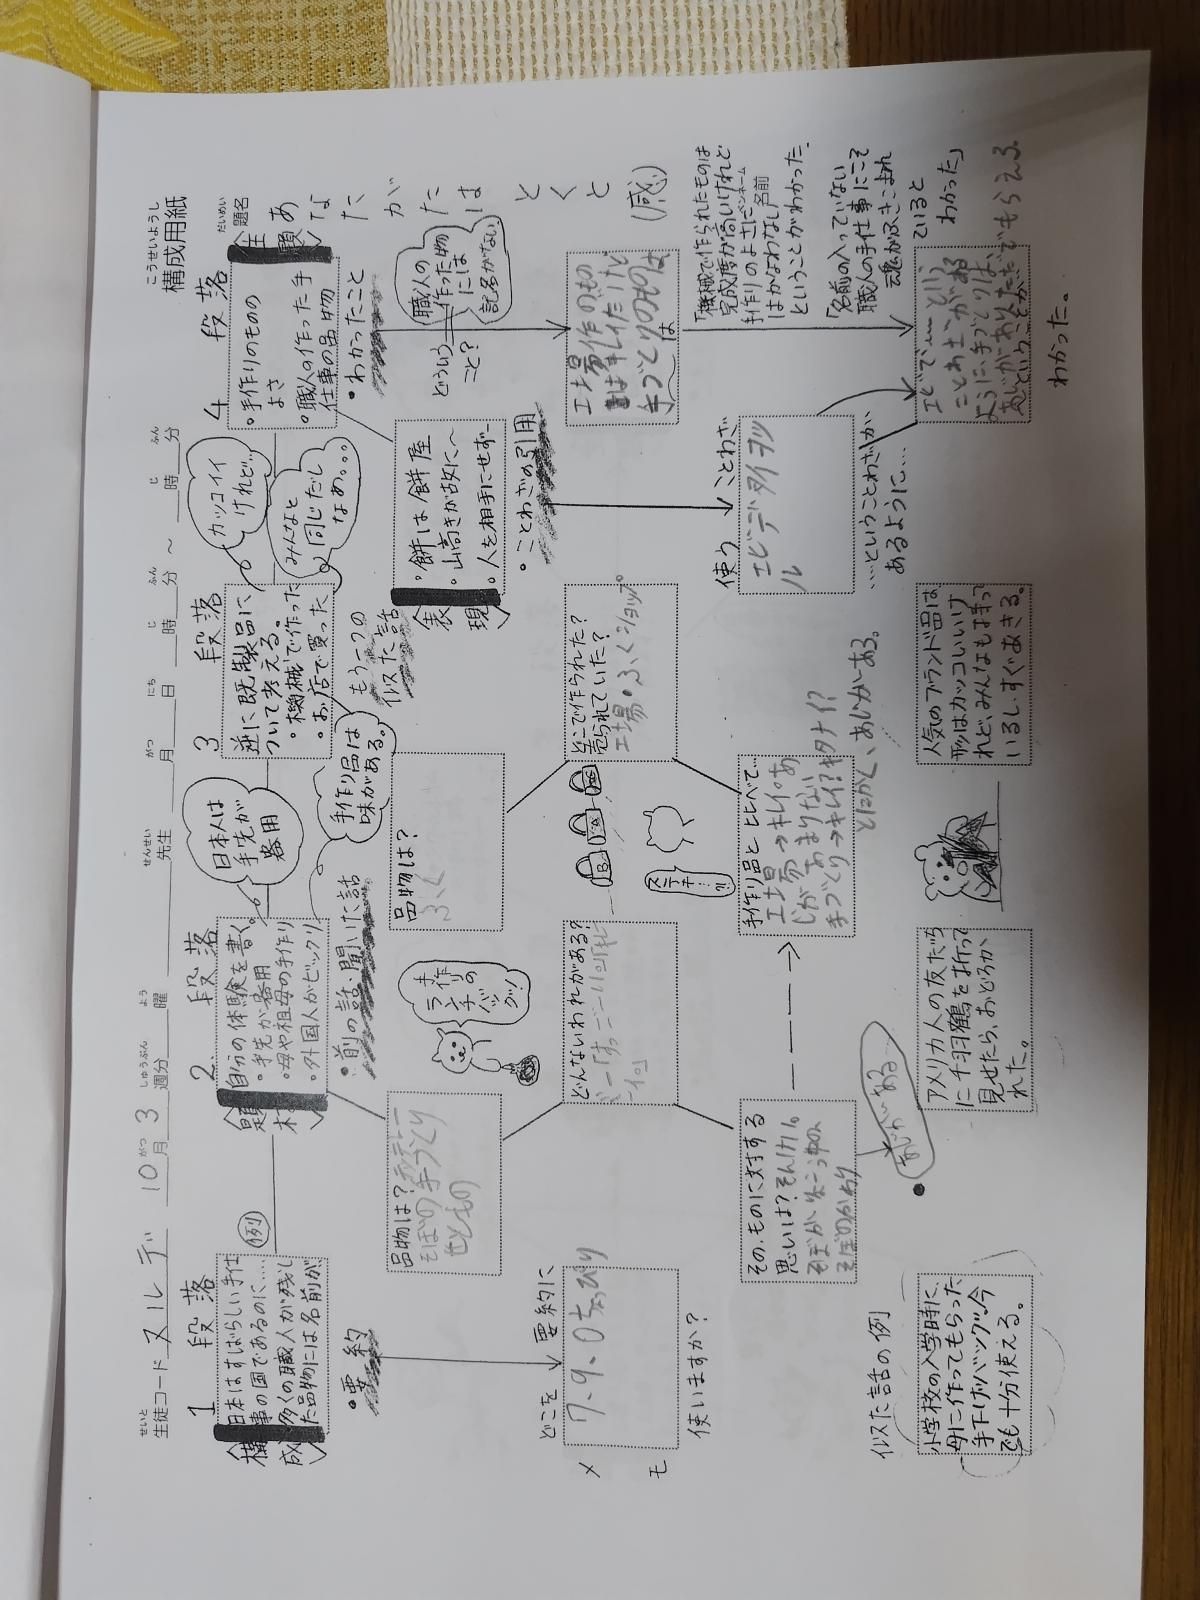 こうせいようし
構成用紙
せいと
生徒コード ヌルデ 10月 3週分 曜 先生 月 日 時 分 ～ 時 分
がつ しゅうぶん よう せんせい がつ にち じ ふん じ ふん
だいめい
題名
1 段落
構成
日本はすばらしい手仕
事の国であるのに……
多くの職人が残し
た品物には名前が
例
・要約
どこを 要約に
使いますか？
メモ
7、9、0ちょっぴり
2. 段落
題材
自分の体験を書く。
・手先が器用
・母や祖母の手作り
・外国人がビックリ
日本人は
手先が
器用
・前の話・聞いた話
手作り品は
味がある。
品物は？
そぼの手づくり
せともの
手作りの
ランチ
バッグ！
どんないわれがある？
その、ものに対する
思いは？
あじわいがある
3 段落
逆に既製品に
ついて考える。
・機械で作った
・お店で買った
カッコイイ
けれど…
みんなと
同じだし
なあ。。。
もう一つの
似た話
品物は？
ふく
どこで作られた？
売られていた？
工場・ふくショップ。
ステキ…!?
手作り品と比べて…
工場→キレイ。あ
じが あまりない
手づくり→キレイ？キタナイ？
とにかく、あじがある。
4 段落
主題
・手作りのものの
よさ
・職人の作った手
仕事の品物
・わかったこと
どういう
こと？
職人の
作った物
には
記名がない
あなたがたはとくと
(感)
表現
・餅は餅屋
・山高きが故に～
・人を相手にせず―
・ことわざの引用
使う ことわざ
エビデタイヲツ
ル
…ということわざが
あるように…
工場作のもの
はキレイだけど
手づくりのものは
「機械で作られたものは
完成度が高いけれど
手作りのよさに
ペンネーム
はかなわない」名前
ということがわかった。
「名前の入っていない
職人の手仕事にこそ
魂が吹きこまれ
ていると
わかった」
エビで……という
ことわざがある
ように、手づくりは、
あじがありただでもらえる
ということが
わかった。
似た話の例
小学校の入学時に、
母に作ってもらった
手下げバッグ。今
でも十分使える。
アメリカ人の友だち
に千羽鶴を折って
見せたら、おどろか
れた。
人気のブランド品は
形はカッコいいけ
れど、みんなも持って
いるし、すぐあきる。